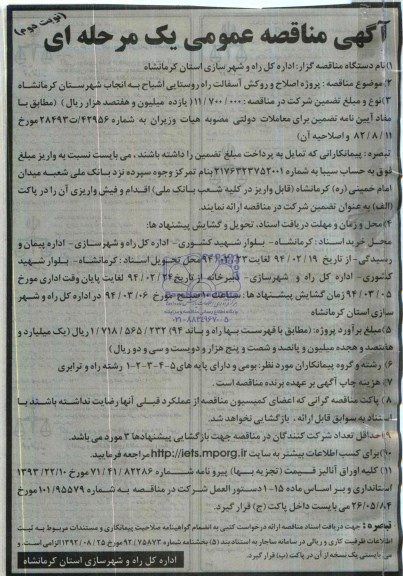 (نوبت دوم)
آگهی مناقصه عمومی یک مرحله ای
۱)نام دستگاه مناقصه گزار: اداره کل راه و شهر سازی استان کرمانشاه
۲)موضوع مناقصه : پروژه اصلاح و روکش آسفالت راه روستایی اشباح به انجاب شهرستان کرمانشاه
۳)نوع و مبلغ تضمین شرکت در مناقصه : ۱۱/۷۰۰/۰۰۰( یازده میلیون و هفتصد هزار ریال ) (مطابق با
مفاد آیین نامه تضمین برای معاملات دولتی مصوبه هیات وزیران به شماره ۴۲۹۵۶/ت۲۸۴۹۳ مورخ
۸۲/۸/۱۱ و اصلاحیه آن)
تبصره : پیمانکارانی که تمایل به پرداخت مبلغ تضمین را داشته باشند ، می بایست نسبت به واریز مبلغ
فوق به حساب سیبا به شماره ۲۱۷۶۳۲۳۷۵۲۰۰۱ بنام تمرکز وجوه سپرده نزد بانک ملی شعبه میدان
امام خمینی (ره) کرمانشاه (قابل واریز در کلیه شعب بانک ملی) اقدام و فیش واریزی آن را در پاکت
(الف) به عنوان تضمین شرکت در مناقصه ارائه نمایند.
۴)محل و زمان و مهلت دریافت اسناد، تحویل و گشایش پیشنهاد ها:
محل خرید اسناد : کرمانشاه- بلوار شهید کشوری- اداره کل راه و شهرسازی- اداره پیمان و
رسیدگی- از تاریخ ۹۴/۰۲/۱۹ لغایت ۹۴/۰۲/۲۳ محل تحویل اسناد : کرمانشاه- بلوار شهید
کشوری- اداره کل راه و شهرسازی- دبیرخانه از تاریخ ۹۴/۰۲/۲۴ لغایت پایان وقت اداری مورخ
۹۴/۰۳/۰۵ زمان گشایش پیشنهاد ها : ساعت ۱۰ صبح مورخ ۹۴/۰۳/۰۶ در اداره کل راه و شهر
سازی استان کرمانشاه
۵)مبلغ برآورد پروژه: (مطابق با فهرست بها راه و باند ۹۴) ۱/۷۱۸/۵۶۵/۲۳۲ ریال (یک میلیارد و
هفتصد و هجده میلیون و پانصد و شصت و پنج هزار و دویست و سی و دو ریال)
۶) رشته و گروه پیمانکاران مورد نظر: بومی و دارای پایه های ۵-۴-۳-۲-۱ رشته راه و ترابری
۷) هزینه چاپ آگهی بر عهده برنده مناقصه است .
۸) پاکت مناقصه گرانی که اعضای کمیسیون مناقصه از عملکرد قبلی آنها رضایت نداشته باشند با
استناد به سوابق قابل ارائه ، بازگشایی نخواهد شد.
۹)حداقل تعداد شرکت کنندگان در مناقصه جهت بازگشایی پیشنهادها ۳ مورد می باشد.
۱۰)برای کسب اطلاعات بیشتر به سایت http://iets.mporg.ir مراجعه فرمایید.
۱۱) کلیه اوراق آنالیز قیمت (تجزیه بها) پیرو نامه شماره ۷۱/۴۱/۸۲۲۸۶ مورخ ۱۳۹۳/۲۲/۱۰
استانداری و بر اساس ماده ۱۵-۱ دستور العمل شرکت در مناقصه به شماره ۱۰۱/۹۵۵۷۹ مورخ
۲۶/۰۵/۸۴ می بایست داخل پاکت (ج) قرار گیرد.
تبصره : جهت دریافت اسناد مناقصه ارائه درخواست کتبی به انضمام گواهینامه صلاحیت پیمانکاری و مستندات مربوط به ثبت
اطلاعات ظرفیت کاری و ریالی در سامانه ساجار به استناد بند (۵) بخشنامه شماره ۹۲/۷۵۸۷۳ مورخ ۱۳۹۲/۰۸/۲۵ الزامی است . و
می بایستی یک نسخه از آن در پاکت (ب) قرار گیرد.
اداره کل راه و شهرسازی استان کرمانشاه